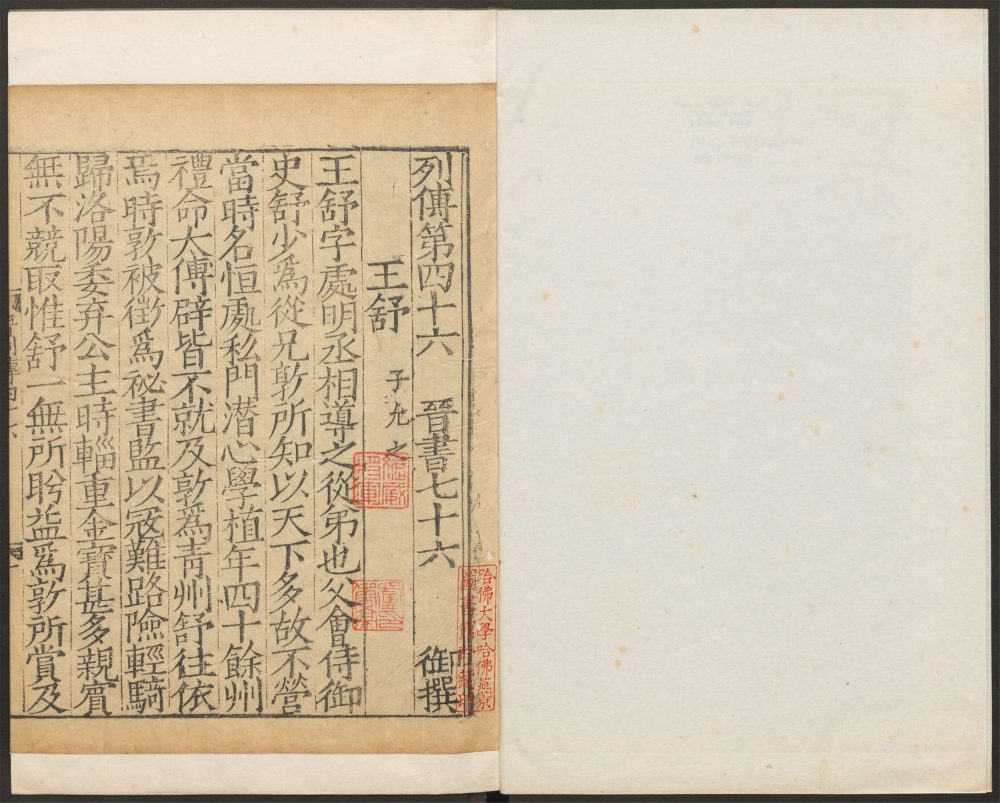 列傳第四十六 晉書七十六 御撰
王舒 子允之
王舒字處明丞相導之從弟也父會侍御
史舒少爲從兄敦所知以天下多故不營
當時名恒處私門潜心學植年四十餘州
禮命太傅辟皆不就及敦爲青州舒往依
焉時敦被徵爲祕書監以宼難路險輕騎
歸洛陽委弃公主時輜重金寶甚多親賔
無不競取惟舒一無所眄益爲敦所賞及
哈佛大學哈佛燕京
圖書館珍藏印